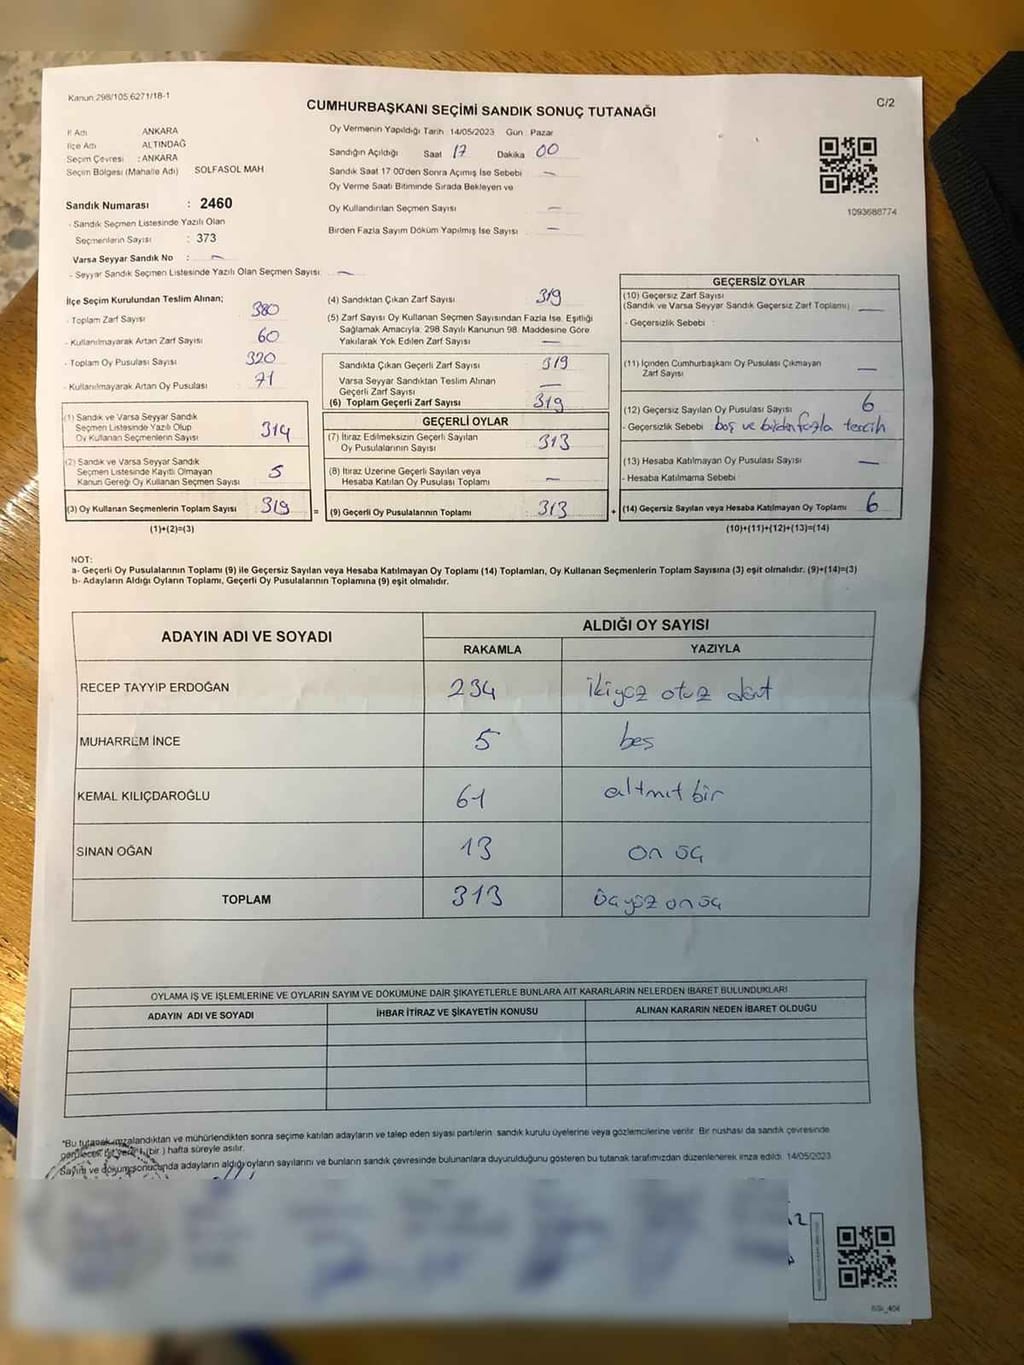 Kanun 298/105 6271/18-1
CUMHURBAŞKANI SEÇİMİ SANDIK SONUÇ TUTANAĞI
C/2
İl Adı ANKARA
İlçe Adı ALTINDAĞ
Seçim Çevresi : ANKARA
Seçim Bölgesi (Mahalle Adı) SOLFASOL MAH
Sandık Numarası : 2460
- Sandık Seçmen Listesinde Yazılı Olan
Seçmenlerin Sayısı : 373
Varsa Seyyar Sandık No : —
- Seyyar Sandık Seçmen Listesinde Yazılı Olan Seçmen Sayısı: —
Oy Vermenin Yapıldığı Tarih 14/05/2023 Gün : Pazar
Sandığın Açıldığı Saat 17 Dakika 00
Sandık Saat 17 00'den Sonra Açımış İse Sebebi —
Oy Verme Saati Bitiminde Sırada Bekleyen ve
Oy Kullandırılan Seçmen Sayısı —
Birden Fazla Sayım Döküm Yapılmış İse Sayısı —
1093688774
İlçe Seçim Kurulundan Teslim Alınan;
- Toplam Zarf Sayısı 380
- Kullanılmayarak Artan Zarf Sayısı 60
- Toplam Oy Pusulası Sayısı 320
- Kullanılmayarak Artan Oy Pusulası 71
(1) Sandık ve Varsa Seyyar Sandık
Seçmen Listesinde Yazılı Olup
Oy Kullanan Seçmenlerin Sayısı 314
(2) Sandık ve Varsa Seyyar Sandık
Seçmen Listesinde Kayıtlı Olmayan
Kanun Gereği Oy Kullanan Seçmen Sayısı 5
(3) Oy Kullanan Seçmenlerin Toplam Sayısı 319 =
(1)+(2)=(3)
(4) Sandıktan Çıkan Zarf Sayısı 319
(5) Zarf Sayısı Oy Kullanan Seçmen Sayısından Fazla İse, Eşitliği
Sağlamak Amacıyla, 298 Sayılı Kanunun 98. Maddesine Göre
Yakılarak Yok Edilen Zarf Sayısı —
Sandıkta Çıkan Geçerli Zarf Sayısı 319
Varsa Seyyar Sandıktan Teslim Alınan
Geçerli Zarf Sayısı —
(6) Toplam Geçerli Zarf Sayısı 319
GEÇERLİ OYLAR
(7) İtiraz Edilmeksizin Geçerli Sayılan
Oy Pusulalarının Sayısı 313
(8) İtiraz Üzerine Geçerli Sayılan veya
Hesaba Katılan Oy Pusulası Toplamı —
(9) Geçerli Oy Pusulalarının Toplamı 313 +
GEÇERSİZ OYLAR
(10) Geçersiz Zarf Sayısı
(Sandık ve Varsa Seyyar Sandık Geçersiz Zarf Toplamı) —
- Geçersizlik Sebebi :
(11) İçinden Cumhurbaşkanı Oy Pusulası Çıkmayan
Zarf Sayısı —
(12) Geçersiz Sayılan Oy Pusulası Sayısı 6
- Geçersizlik Sebebi boş ve birden fazla tercih
(13) Hesaba Katılmayan Oy Pusulası Sayısı —
- Hesaba Katılmama Sebebi
(14) Geçersiz Sayılan veya Hesaba Katılmayan Oy Toplamı 6
(10)+(11)+(12)+(13)=(14)
NOT:
a- Geçerli Oy Pusulalarının Toplamı (9) ile Geçersiz Sayılan veya Hesaba Katılmayan Oy Toplamı (14) Toplamları, Oy Kullanan Seçmenlerin Toplam Sayısına (3) eşit olmalıdır. (9)+(14)=(3)
b- Adayların Aldığı Oyların Toplamı, Geçerli Oy Pusulalarının Toplamına (9) eşit olmalıdır.
ADAYIN ADI VE SOYADI ALDIĞI OY SAYISI
RAKAMLA YAZIYLA
RECEP TAYYİP ERDOĞAN 234 ikiyüz otuz dört
MUHARREM İNCE 5 beş
KEMAL KILIÇDAROĞLU 61 altmıt bir
SİNAN OĞAN 13 on üç
TOPLAM 313 üçyüz on üç
OYLAMA İŞ VE İŞLEMLERİNE VE OYLARIN SAYIM VE DÖKÜMÜNE DAİR ŞİKAYETLERLE BUNLARA AİT KARARLARIN NELERDEN İBARET BULUNDUKLARI
ADAYIN ADI VE SOYADI İHBAR İTİRAZ VE ŞİKAYETİN KONUSU ALINAN KARARIN NEDEN İBARET OLDUĞU
*Bu tutanak imzalandıktan ve mühürlendikten sonra seçime katılan adayların ve talep eden siyasi partilerin sandık kurulu üyelerine veya gözlemcilerine verilir. Bir nüshası da sandık çevresinde
görülecek bir yere 1 (bir ) hafta süreyle asılır.
Sayım ve döküm sonucunda adayların aldığı oyların sayılarını ve bunların sandık çevresinde bulunanlara duyurulduğunu gösteren bu tutanak tarafımızdan düzenlenerek imza edildi. 14/05/2023